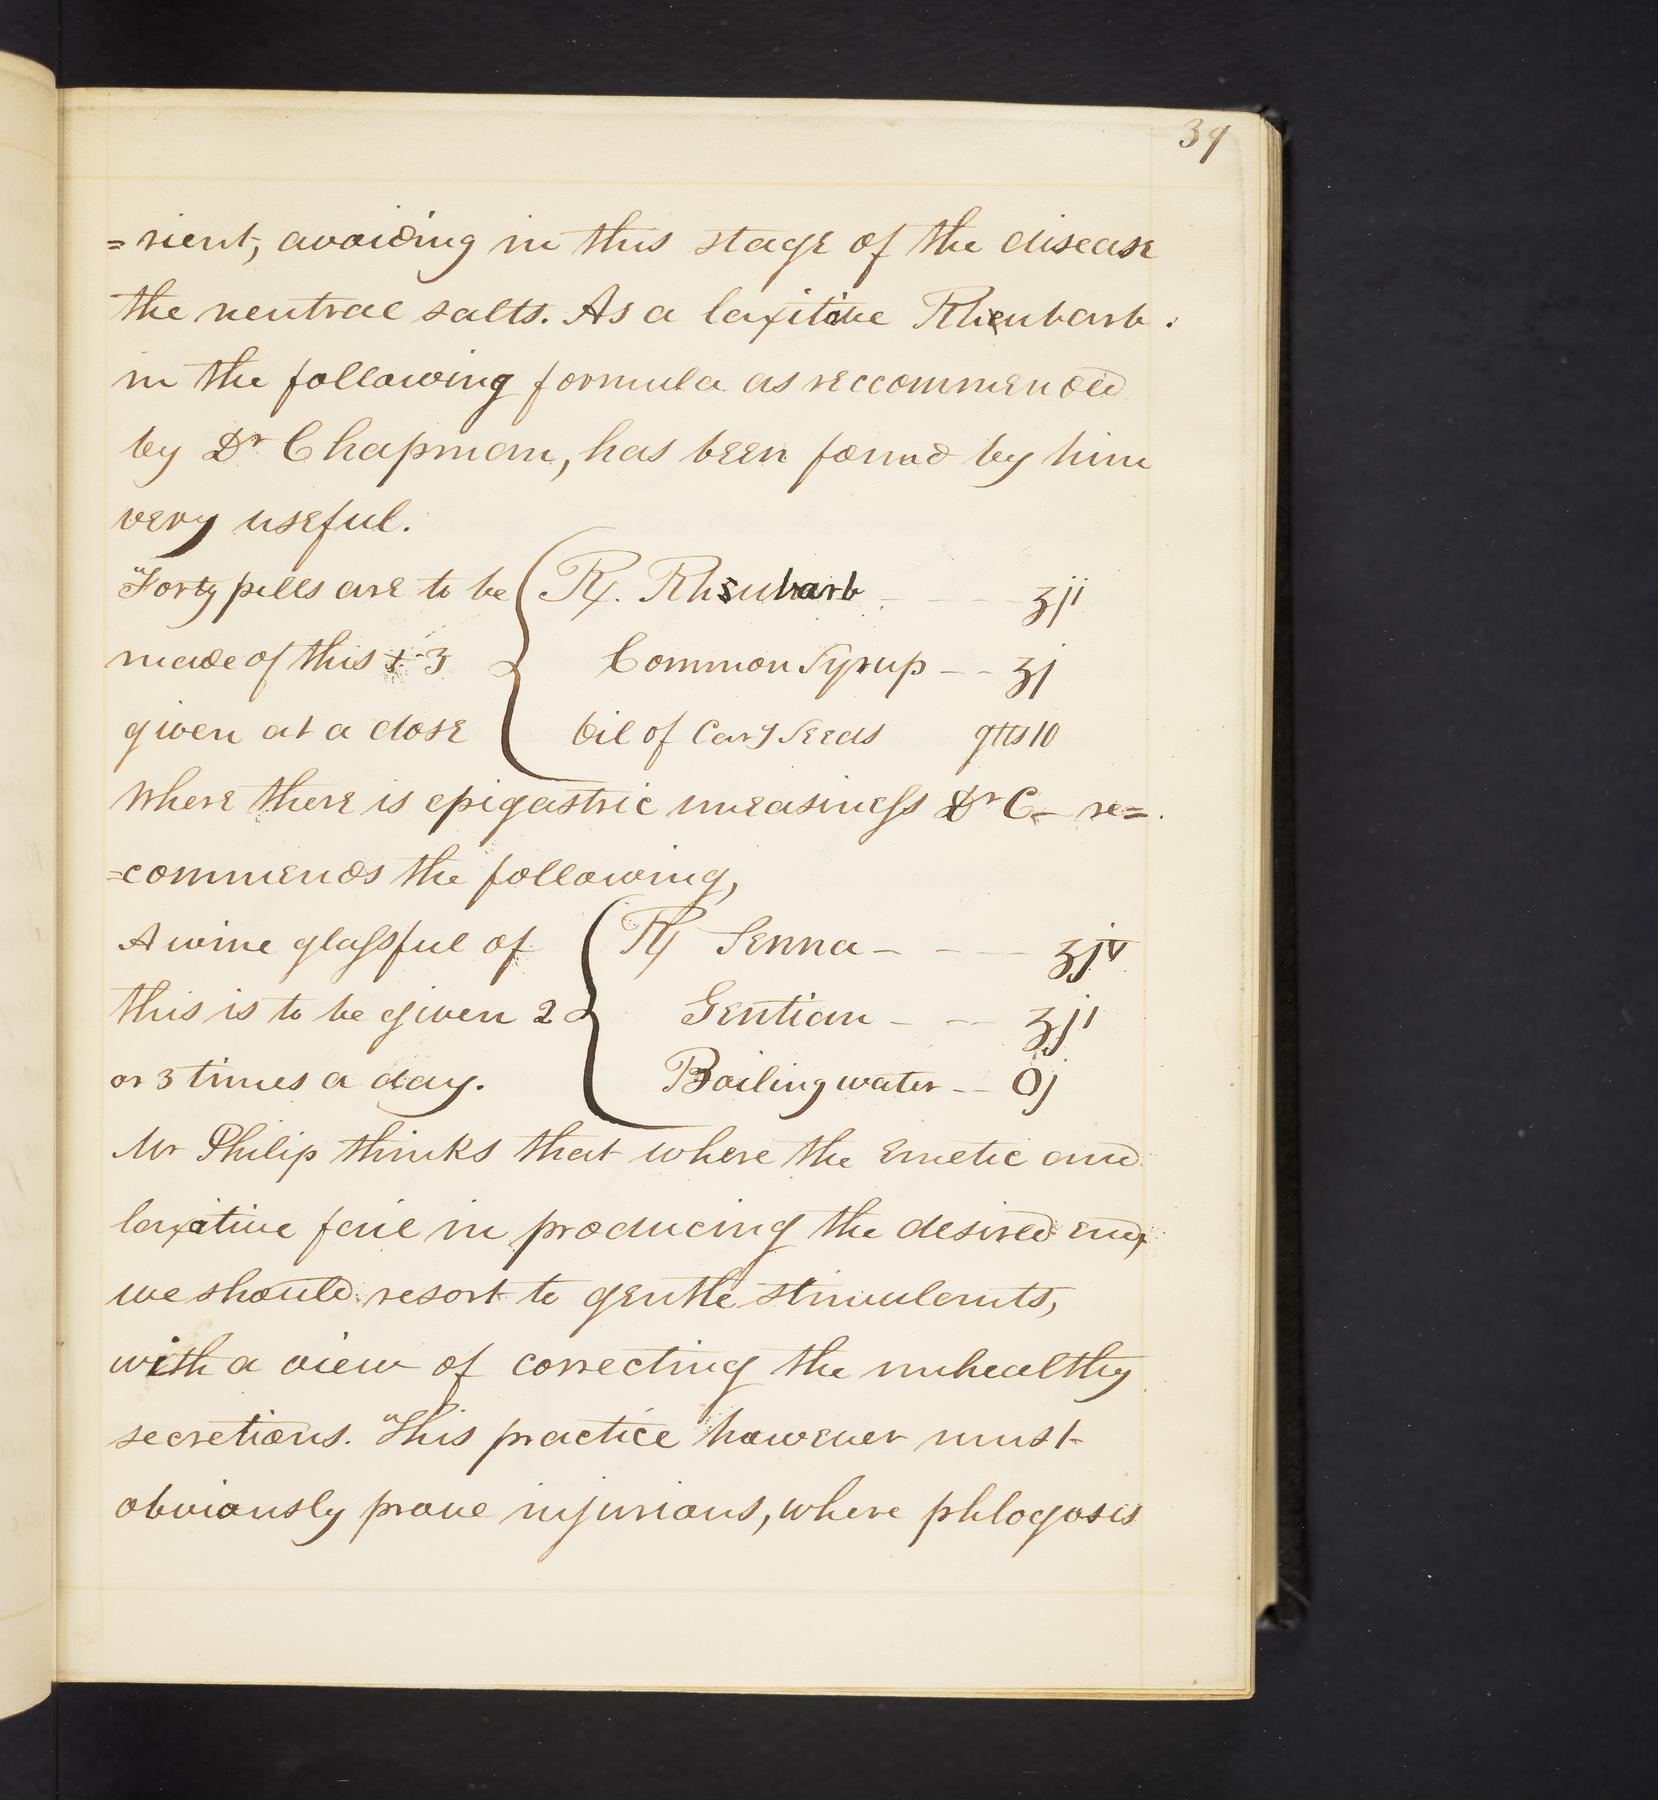 39
=rient, avoiding in this stage of the disease
the neutral salts. As a laxitive Rheubarb.
in the following formula as reccommended
by Dr Chapman, has been found by him
very useful.
Forty pills are to be { ℞. Rheubarb - - - ʒjj
made of this + 3 Common Syrup - - ʒj
given at a dose Oil of Cary Seeds gtts 10
Where there is epigastric uneasiness Dr C- re=
=commends the following,
A wine glassful of { ℞ Senna - - - ʒjv
this is to be given 2 Gentian - - ʒjj
or 3 times a day. Boiling water - - Oj
Mr Philip thinks that where the Emetic and
laxative fail in producing the desired end,
we should resort to gentle stimulants,
with a view of correcting the unhealthy
secretions. This practice however must
obviously prove injurious, where phlogosis